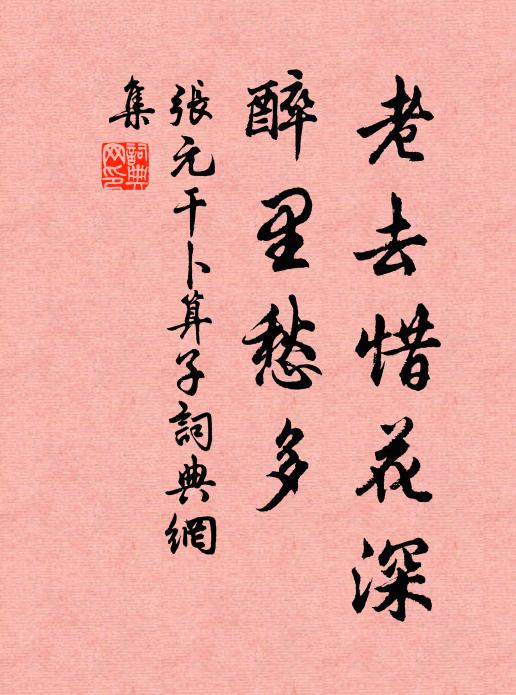 老去惜花深
醉里愁多
張元干卜算子詞典網
集
詞典網印